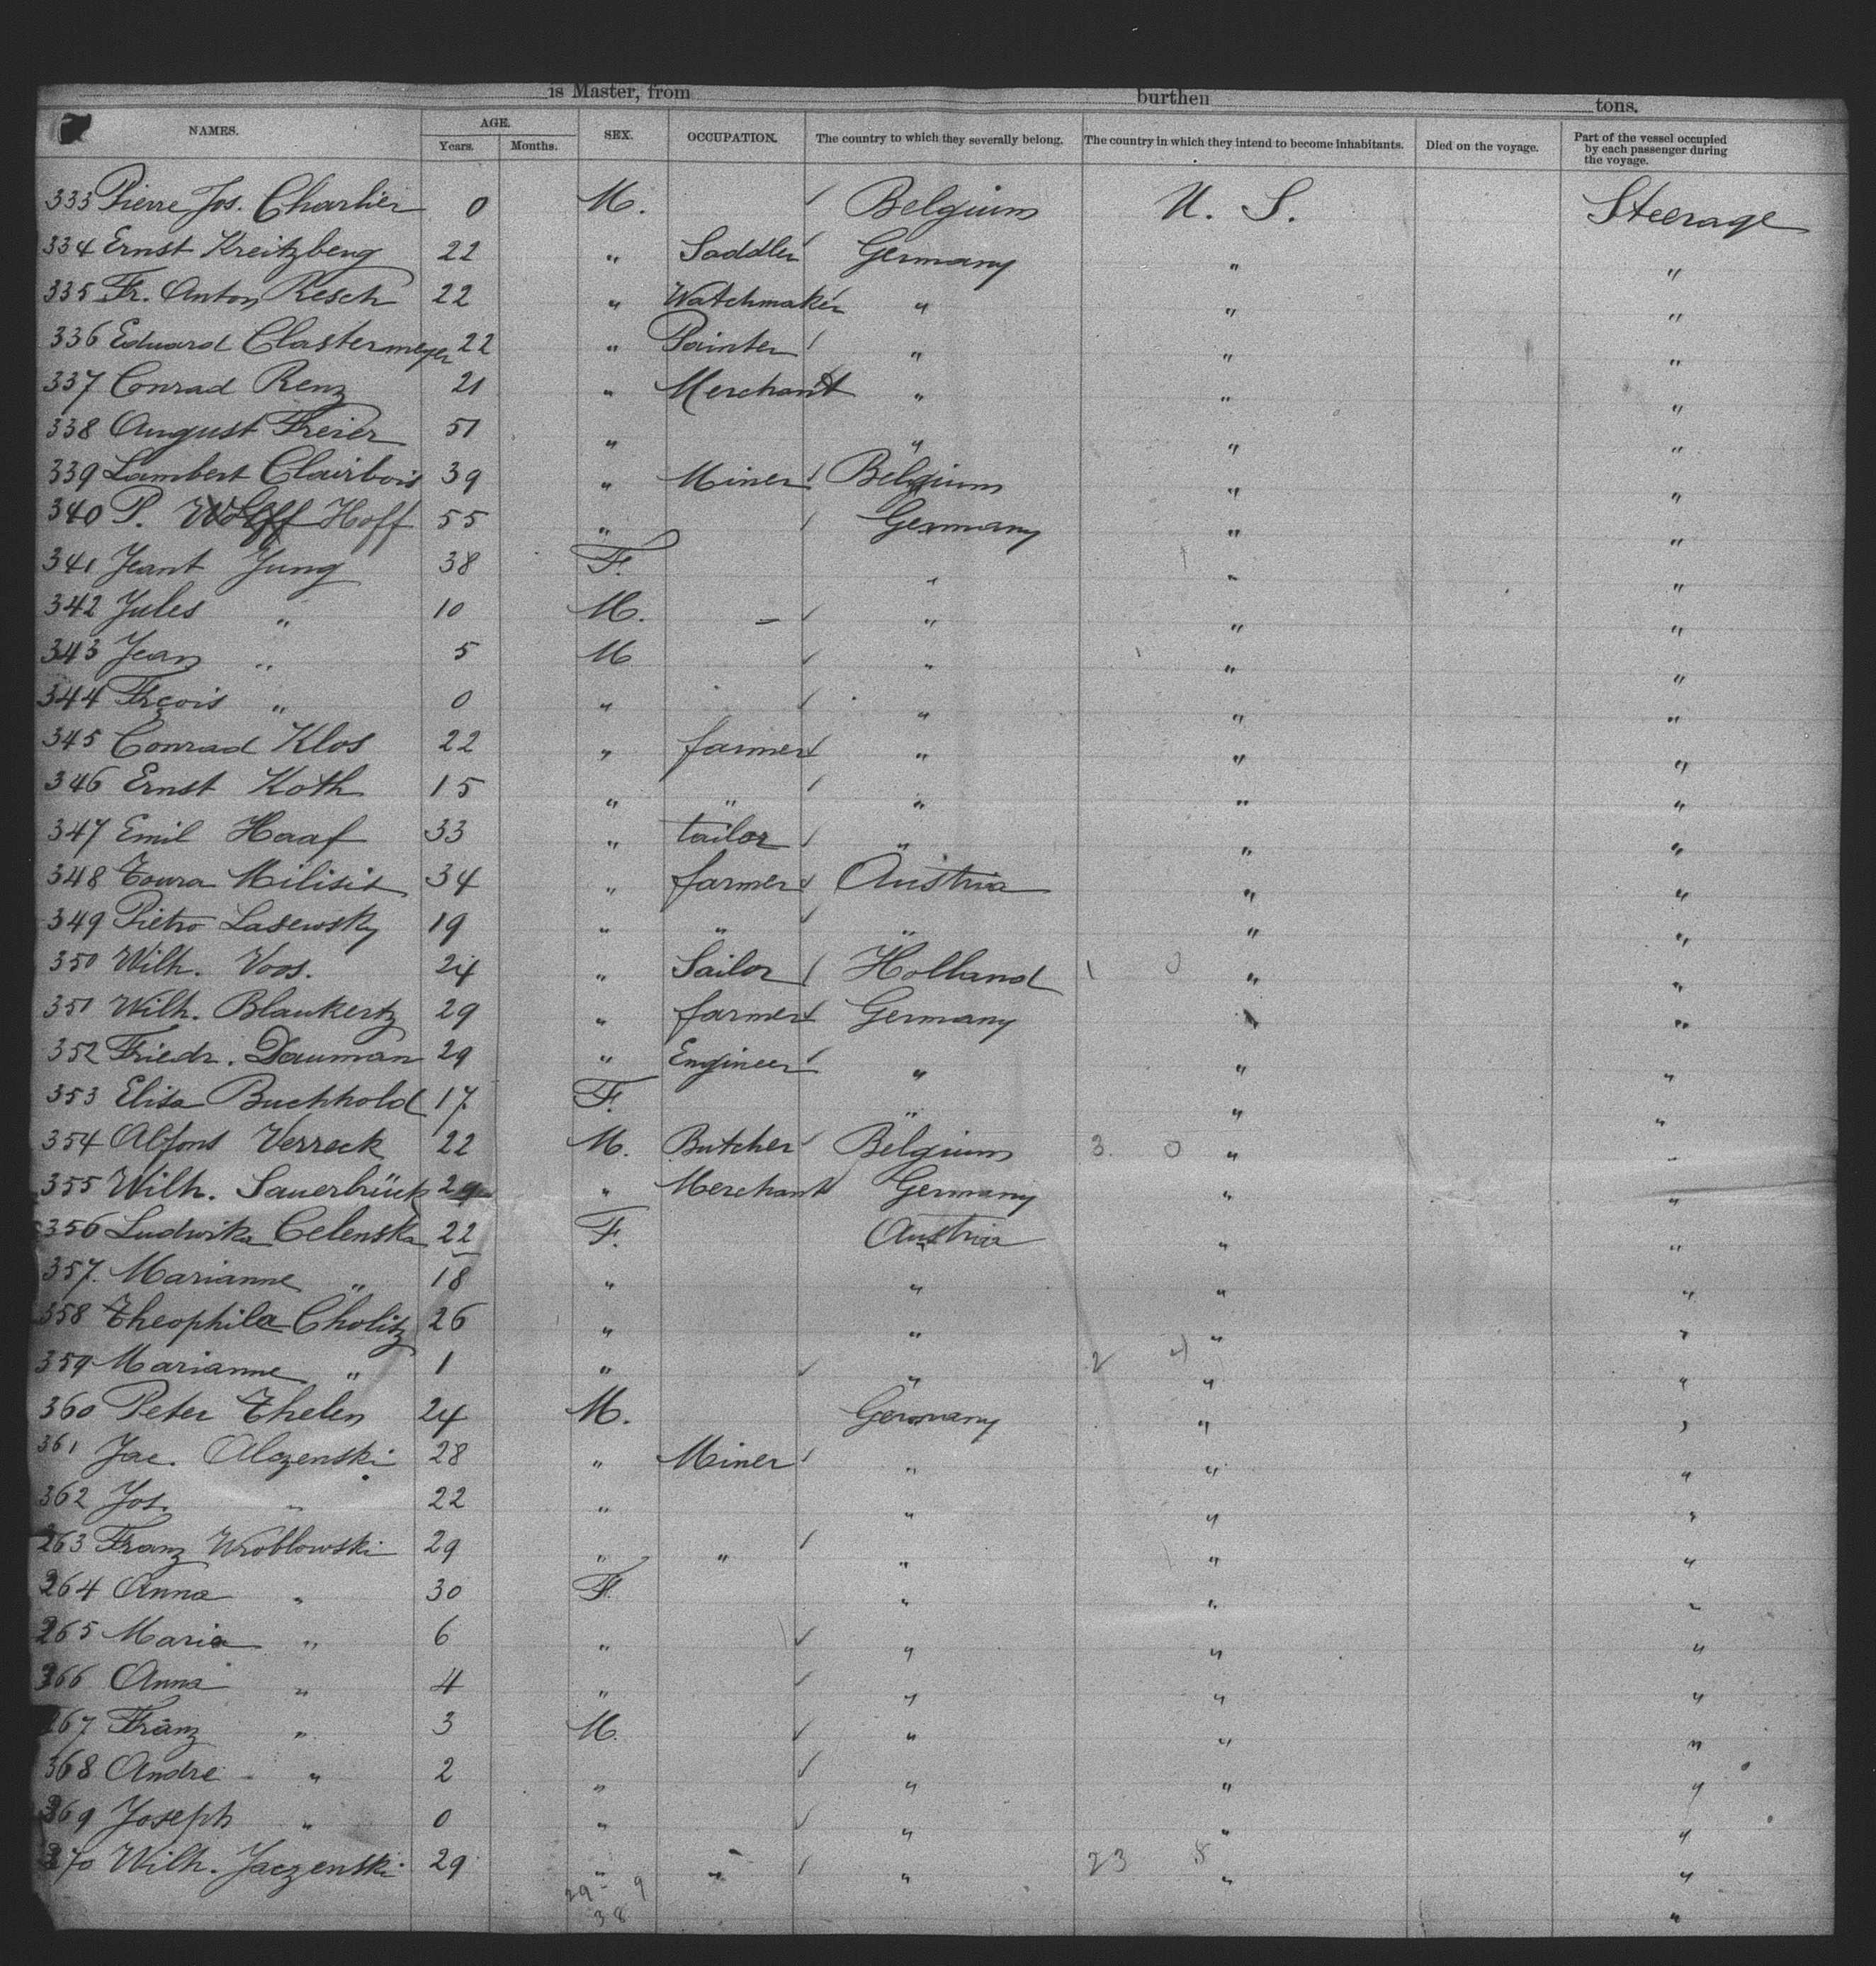 is Master, from burthen tons.
NAMES. AGE. SEX. OCCUPATION. The country to which they severally belong. The country in which they intend to become inhabitants. Died on the voyage. Part of the vessel occupied by each passenger during the voyage.
Years. Months.
333 Pierre Jos. Charlier 0 M. Belgium U. S. Steerage
334 Ernst Kreitzberg 22 " Saddler Germany " "
335 Fr. Anton Resch 22 " Watchmaker " " "
336 Eduard Clastermeyer 22 " Painter " " "
337 Conrad Renz 21 " Merchant " " "
338 August Freier 51 " " " "
339 Lambert Clairbois 39 " Miner Belgium " "
340 P. Wolff Hoff 55 " Germany " "
341 Jeant Jung 38 F. " " "
342 Jules " 10 M. – " " "
343 Jean " 5 M " " "
344 Frçois " 0 " " " "
345 Conrad Klos 22 " farmer " " "
346 Ernst Koth 15 " " " " "
347 Emil Haaf 33 " tailor " " "
348 Toura Milisis 34 " farmer Austria " "
349 Pietro Lasewsky 19 " " " " "
350 Wilh. Voos. 24 " Sailor Holland " "
351 Wilh. Blankertz 29 " farmer Germany " "
352 Friedr. Dauman 29 " Engineer " " "
353 Elisa Buchhold 17 F. " " "
354 Alfons Verreck 22 M. Butcher Belgium 3 0 " "
355 Wilh. Sauerbrück 29 " Merchant Germany " "
356 Ludwika Celenska 22 F. Austria " "
357. Marianne " 18 " " " "
358 Theophila Cholitz 26 " " " "
359 Marianne " 1 " " 2 4 " "
360 Peter Thelen 24 M. Germany " "
361 Jac. Alozenski 28 " Miner " " "
362 Jos. " 22 " " " "
363 Franz Wroblowski 29 " " " " "
364 Anna " 30 F. " " "
365 Maria " 6 " " " "
366 Anna " 4 " " " "
367 Franz " 3 M. " " "
368 Andre " 2 " " " "
369 Joseph " 0 " " " "
370 Wilh. Jaczenski 29 " " " 23 8 " "
29 9
38 "